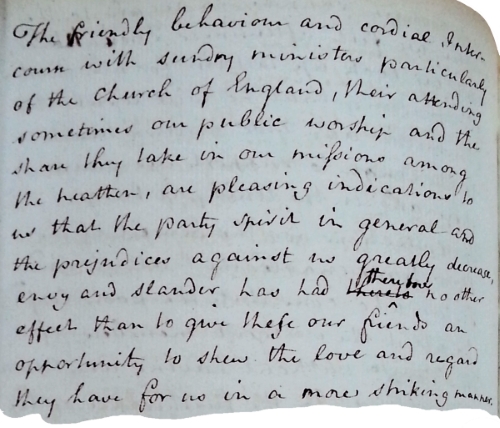 The friendly behaviour and cordial Inter-
course with sundry ministers particularly
of the Church of England, their attending
sometimes our public worship and the
share they take in our missions among
the heathen, are pleasing indications to
us that the party spirit in general and
the prejudices against us greatly decrease,
envy and slander has had no other
effect than to give these our friends an
opportunity to shew the love and regard
they have for us in a more striking manner.